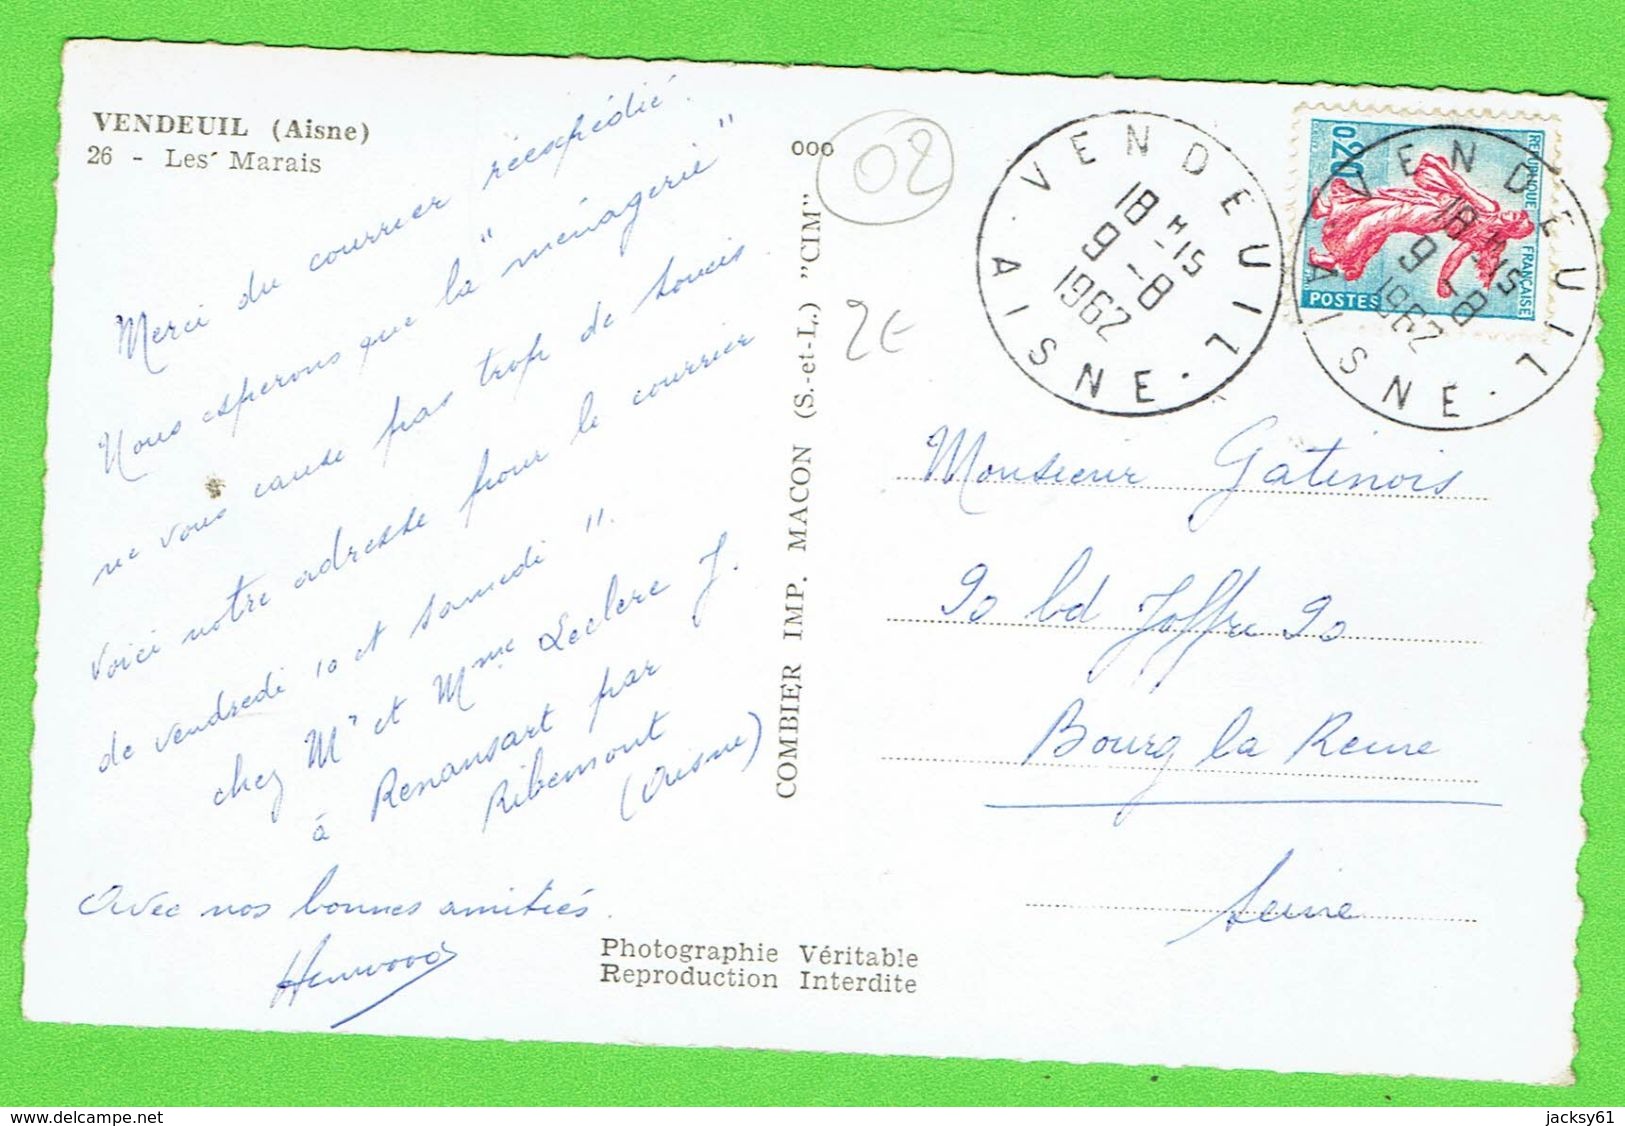 VENDEUIL (Aisne)
26 - Les Marais
Merci du courrier réexpédié.
Nous espérons que la "ménagerie"
ne vous cause pas trop de soucis
Voici notre adresse pour le courrier
de vendredi 10 et samedi 11.
chez Mr et Mme Leclere J.
à Renansart par
Ribemont
(Aisne)
Avec nos bonnes amitiés.
Photographie Véritable
Reproduction Interdite
COMBIER IMP. MACON (S.-et-L.) "CIM"
000
02
2€
VENDEUIL
18 H 15
9 - 8
1962
AISNE
REPUBLIQUE FRANÇAISE
0,20
POSTES
VENDEUIL
18 H 15
9 - 8
1962
AISNE
Monsieur Gatinois
90 bd Joffre 90
Bourg la Reine
Seine
www.delcampe.net
jacksy61